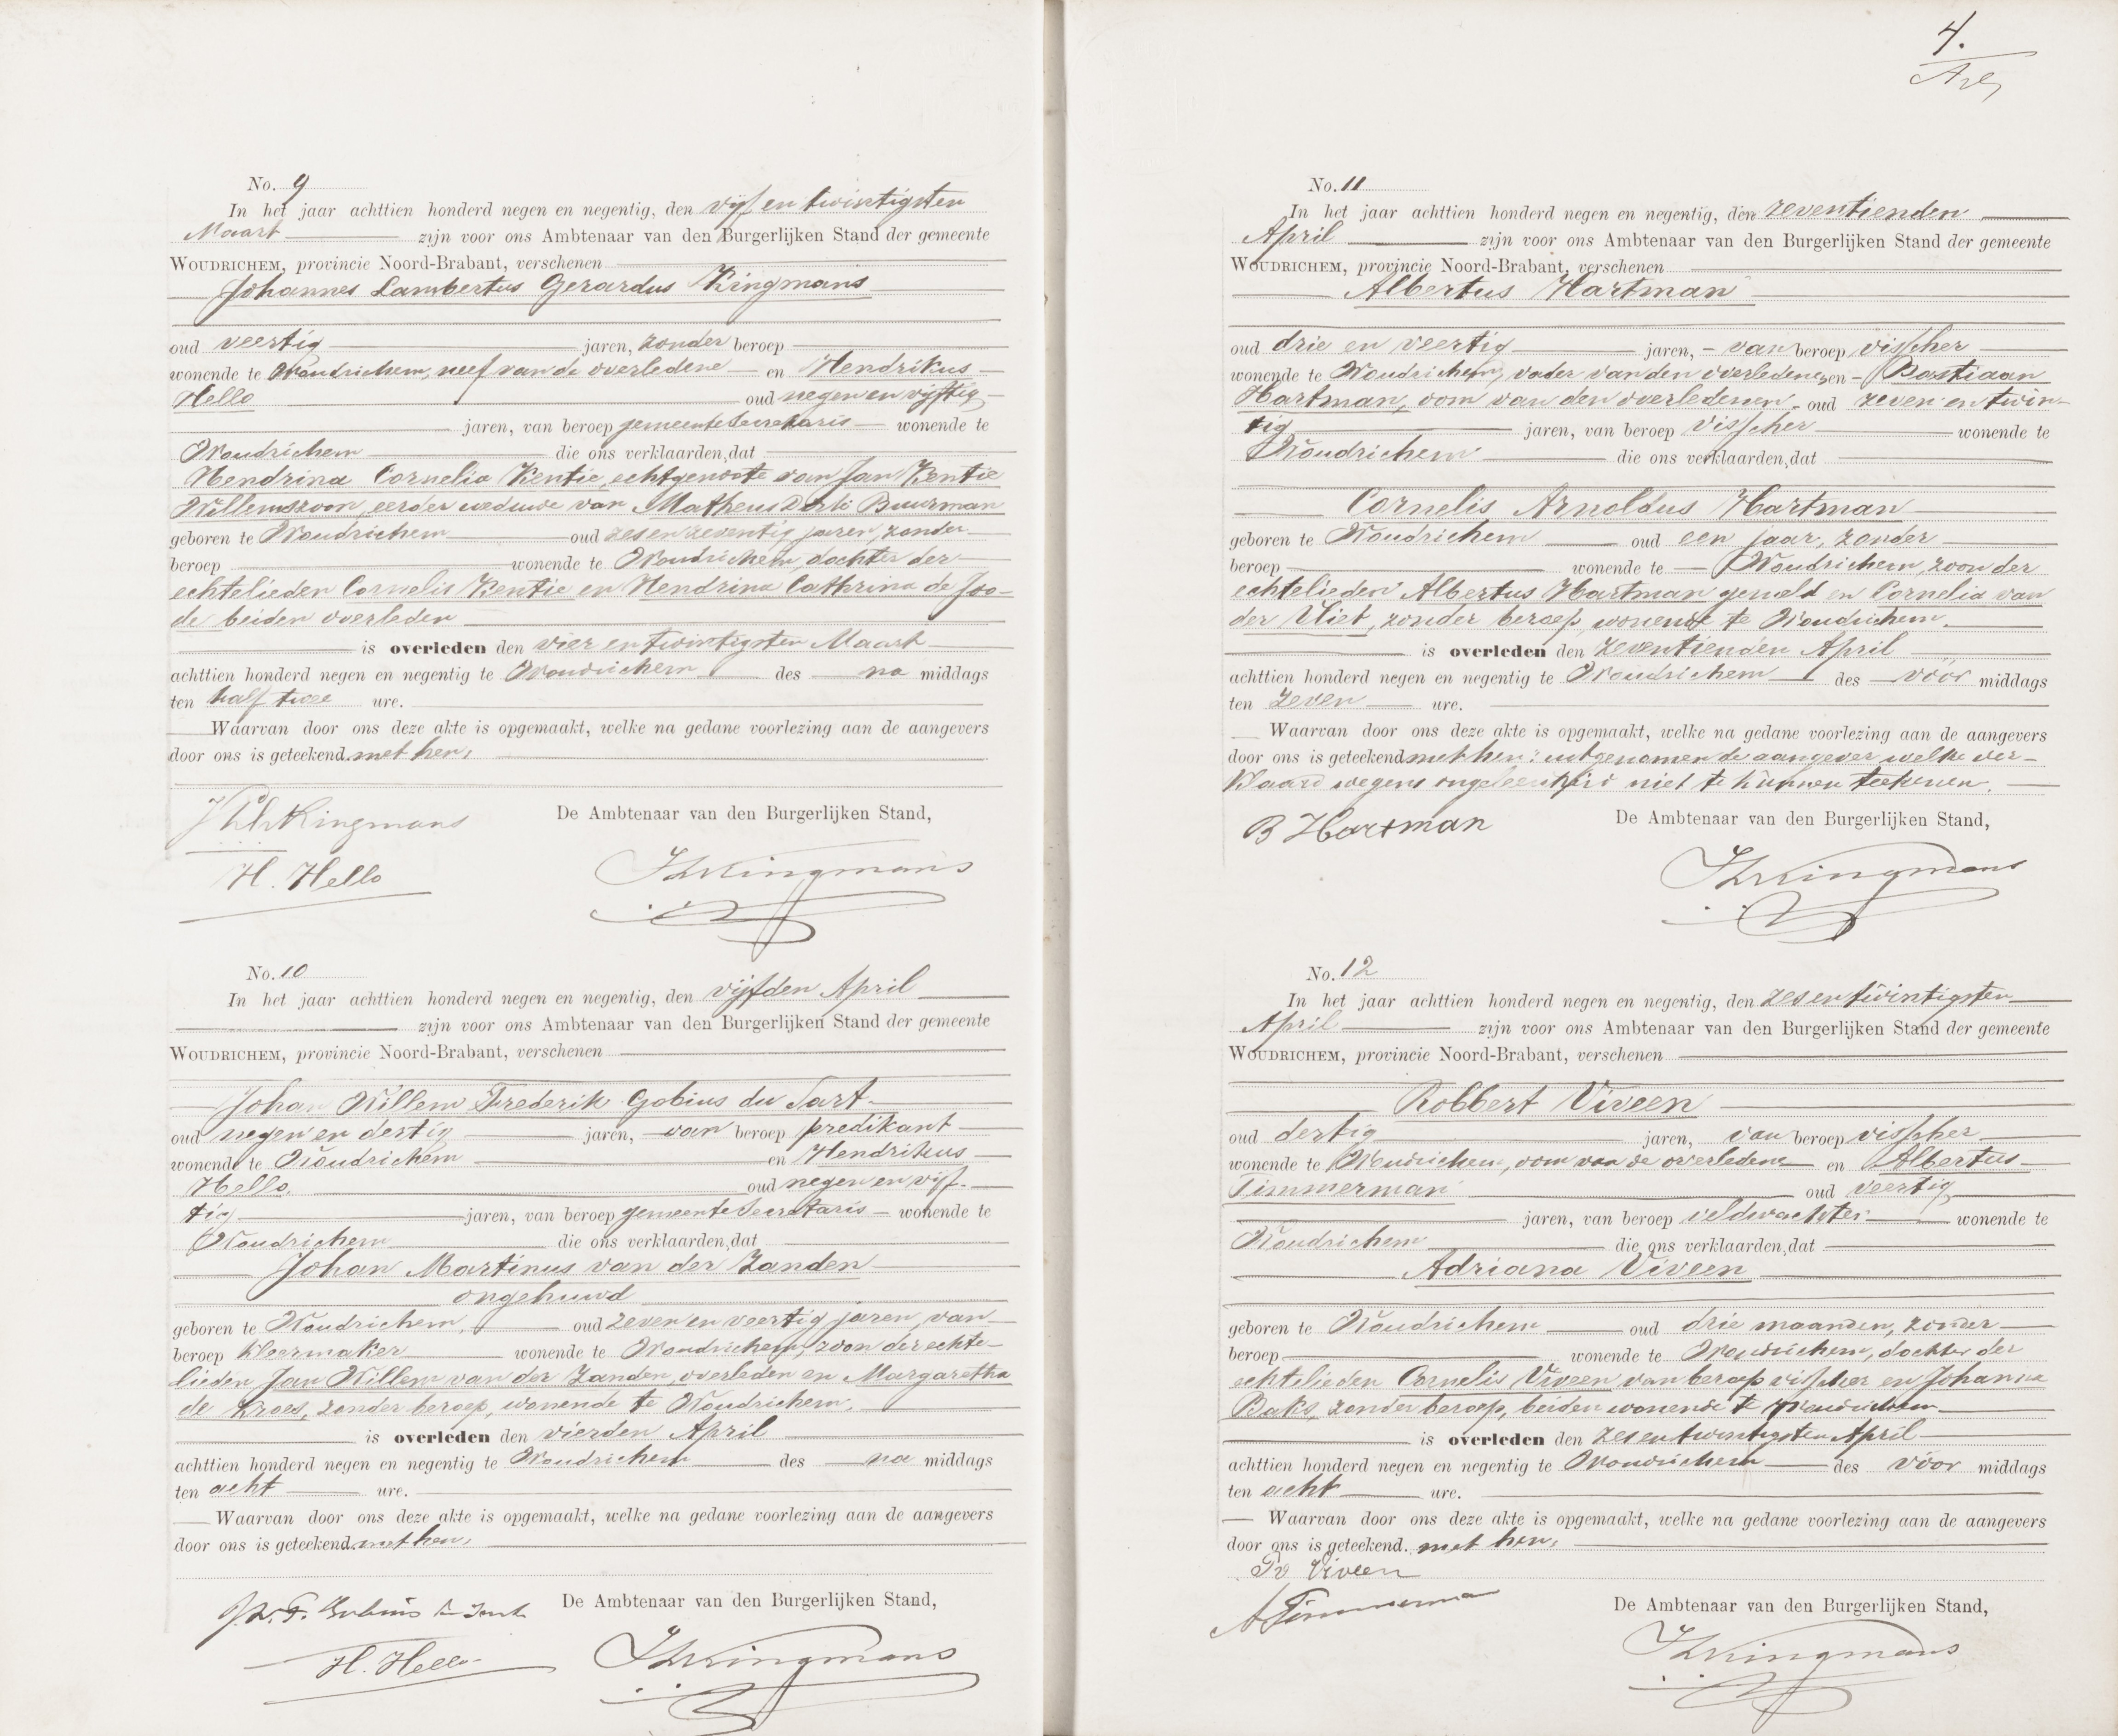 No. 9
In het jaar achttien honderd negen en negentig, den vijf en twintigsten
Maart zijn voor ons Ambtenaar van den Burgerlijken Stand der gemeente
WOUDRICHEM, provincie Noord-Brabant, verschenen
Johannes Lambertus Gerardus Kingmans
oud veertig jaren, zonder beroep
wonende te Woudrichem, neef van de overledene en Hendrikus
Hello oud negen en vijftig
jaren, van beroep gemeente secretaris wonende te
Woudrichem die ons verklaarden, dat
Hendrina Cornelia Kentie, echtgenoote van Jan Kentie
Willemszoon, eerder weduwe van Matheus Buurman
geboren te Woudrichem oud zes en zeventig jaren, zonder
beroep wonende te Woudrichem, dochter der
echtelieden Cornelis Kentie en Hendrina Cathrina de Joo-
de beiden overleden
is overleden den vier en twintigsten Maart
achttien honderd negen en negentig te Woudrichem des na middags
ten half twee ure.
Waarvan door ons deze akte is opgemaakt, welke na gedane voorlezing aan de aangevers
door ons is geteekend. met hen,
Kingmans
De Ambtenaar van den Burgerlijken Stand,
H. Hello
Kingmans
No. 10
In het jaar achttien honderd negen en negentig, den vijfden April
zijn voor ons Ambtenaar van den Burgerlijken Stand der gemeente
WOUDRICHEM, provincie Noord-Brabant, verschenen
Johan Willem Frederik Gobius du Sart
oud negen en dertig jaren, van beroep predikant
wonende te Woudrichem en Hendrikus
Hello, oud negen en vijf-
tig jaren, van beroep gemeente Secretaris wonende te
Woudrichem die ons verklaarden, dat
Johan Martinus van der Zanden
ongehuwd
geboren te Woudrichem, oud zeven en veertig jaren, van
beroep kleermaker wonende te Woudrichem, zoon der echte-
lieden Jan Willem van der Zanden, overleden en Margaretha
de Kroes, zonder beroep, wonende te Woudrichem,
is overleden den vierden April
achttien honderd negen en negentig te Woudrichem des na middags
ten acht ure.
Waarvan door ons deze akte is opgemaakt, welke na gedane voorlezing aan de aangevers
door ons is geteekend. met hen,
J.W.F. Gobius du Sart
De Ambtenaar van den Burgerlijken Stand,
H. Hello
Kingmans
4.
No. 11
In het jaar achttien honderd negen en negentig, den zeventienden
April zijn voor ons Ambtenaar van den Burgerlijken Stand der gemeente
WOUDRICHEM, provincie Noord-Brabant, verschenen
Albertus Hartman
oud drie en veertig jaren, van beroep visscher
wonende te Woudrichem, vader van den overledene, en Bastiaan
Hartman, oom van den overledenen oud zeven en twin-
tig jaren, van beroep visscher wonende te
Woudrichem die ons verklaarden, dat
Cornelis Arnoldus Hartman
geboren te Woudrichem oud een jaar, zonder
beroep wonende te Woudrichem, zoon der
echtelieden Albertus Hartman gemeld en Cornelia van
der Vliet, zonder beroep, wonende te Woudrichem.
is overleden den zeventienden April
achttien honderd negen en negentig te Woudrichem des vóór middags
ten zeven ure.
Waarvan door ons deze akte is opgemaakt, welke na gedane voorlezing aan de aangevers
door ons is geteekend met hen: uitgenomen de aangever welke ver-
klaard wegens ongeleerdheid niet te kunnen teekenen.
B Hartman
De Ambtenaar van den Burgerlijken Stand,
Kingmans
No. 12
In het jaar achttien honderd negen en negentig, den zes en twintigsten
April zijn voor ons Ambtenaar van den Burgerlijken Stand der gemeente
WOUDRICHEM, provincie Noord-Brabant, verschenen
Robbert Viveen
oud dertig jaren, van beroep visscher
wonende te Woudrichem, oom van de overledene en Albertus
Timmerman oud veertig
jaren, van beroep veldwachter wonende te
Woudrichem die ons verklaarden, dat
Adriana Viveen
geboren te Woudrichem oud drie maanden, zonder
beroep wonende te Woudrichem, dochter der
echtelieden Cornelis Viveen, van beroep visscher en Johanna
Baks, zonder beroep, beiden wonende te Woudrichem
is overleden den zes en twintigsten April
achttien honderd negen en negentig te Woudrichem des vóór middags
ten acht ure.
Waarvan door ons deze akte is opgemaakt, welke na gedane voorlezing aan de aangevers
door ons is geteekend. met hen,
R Viveen
A Timmerman
De Ambtenaar van den Burgerlijken Stand,
Kingmans